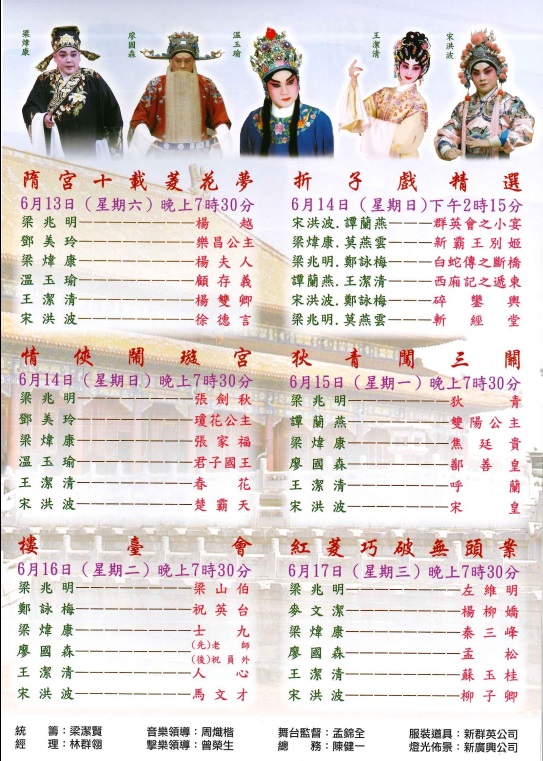 梁煒康
廖國森
溫玉瑜
王潔清
宋洪波
隋宮十載菱花夢
6月13日（星期六）晚上7時30分
梁兆明————楊越
鄧美玲————樂昌公主
梁煒康————楊夫人
溫玉瑜————顧存義
王潔清————楊雙卿
宋洪波————徐德言
折子戲精選
6月14日（星期日）下午2時15分
宋洪波.譚蘭燕——群英會之小宴
梁煒康.莫燕雲——新霸王別姬
梁兆明.鄭詠梅——白蛇傳之斷橋
譚蘭燕.王潔清——西廂記之遞柬
宋洪波.鄭詠梅——碎鑾輿
梁兆明.莫燕雲——斬經堂
情俠鬧璇宮
6月14日（星期日）晚上7時30分
梁兆明————張劍秋
鄧美玲————瓊花公主
梁煒康————張家福
溫玉瑜————君子國王
王潔清————春花
宋洪波————楚霸天
狄青闖三關
6月15日（星期一）晚上7時30分
梁兆明————狄青
譚蘭燕————雙陽公主
梁煒康————焦廷貴
廖國森————鄯善皇
王潔清————呼蘭
宋洪波————宋皇
樓臺會
6月16日（星期二）晚上7時30分
梁兆明————梁山伯
鄭詠梅————祝英台
梁煒康————士九
廖國森————(先)老師
(後)祝員外
王潔清————人心
宋洪波————馬文才
紅菱巧破無頭案
6月17日（星期三）晚上7時30分
梁兆明————左維明
麥文潔————楊柳嬌
梁煒康————秦三峰
廖國森————孟松
王潔清————蘇玉桂
宋洪波————柳子卿
統籌：梁潔賢
音樂領導：周熾楷
舞台監督：孟錦全
服裝道具：新群英公司
經理：林群翎
擊樂領導：曾榮生
總務：陳健一
燈光佈景：新廣興公司